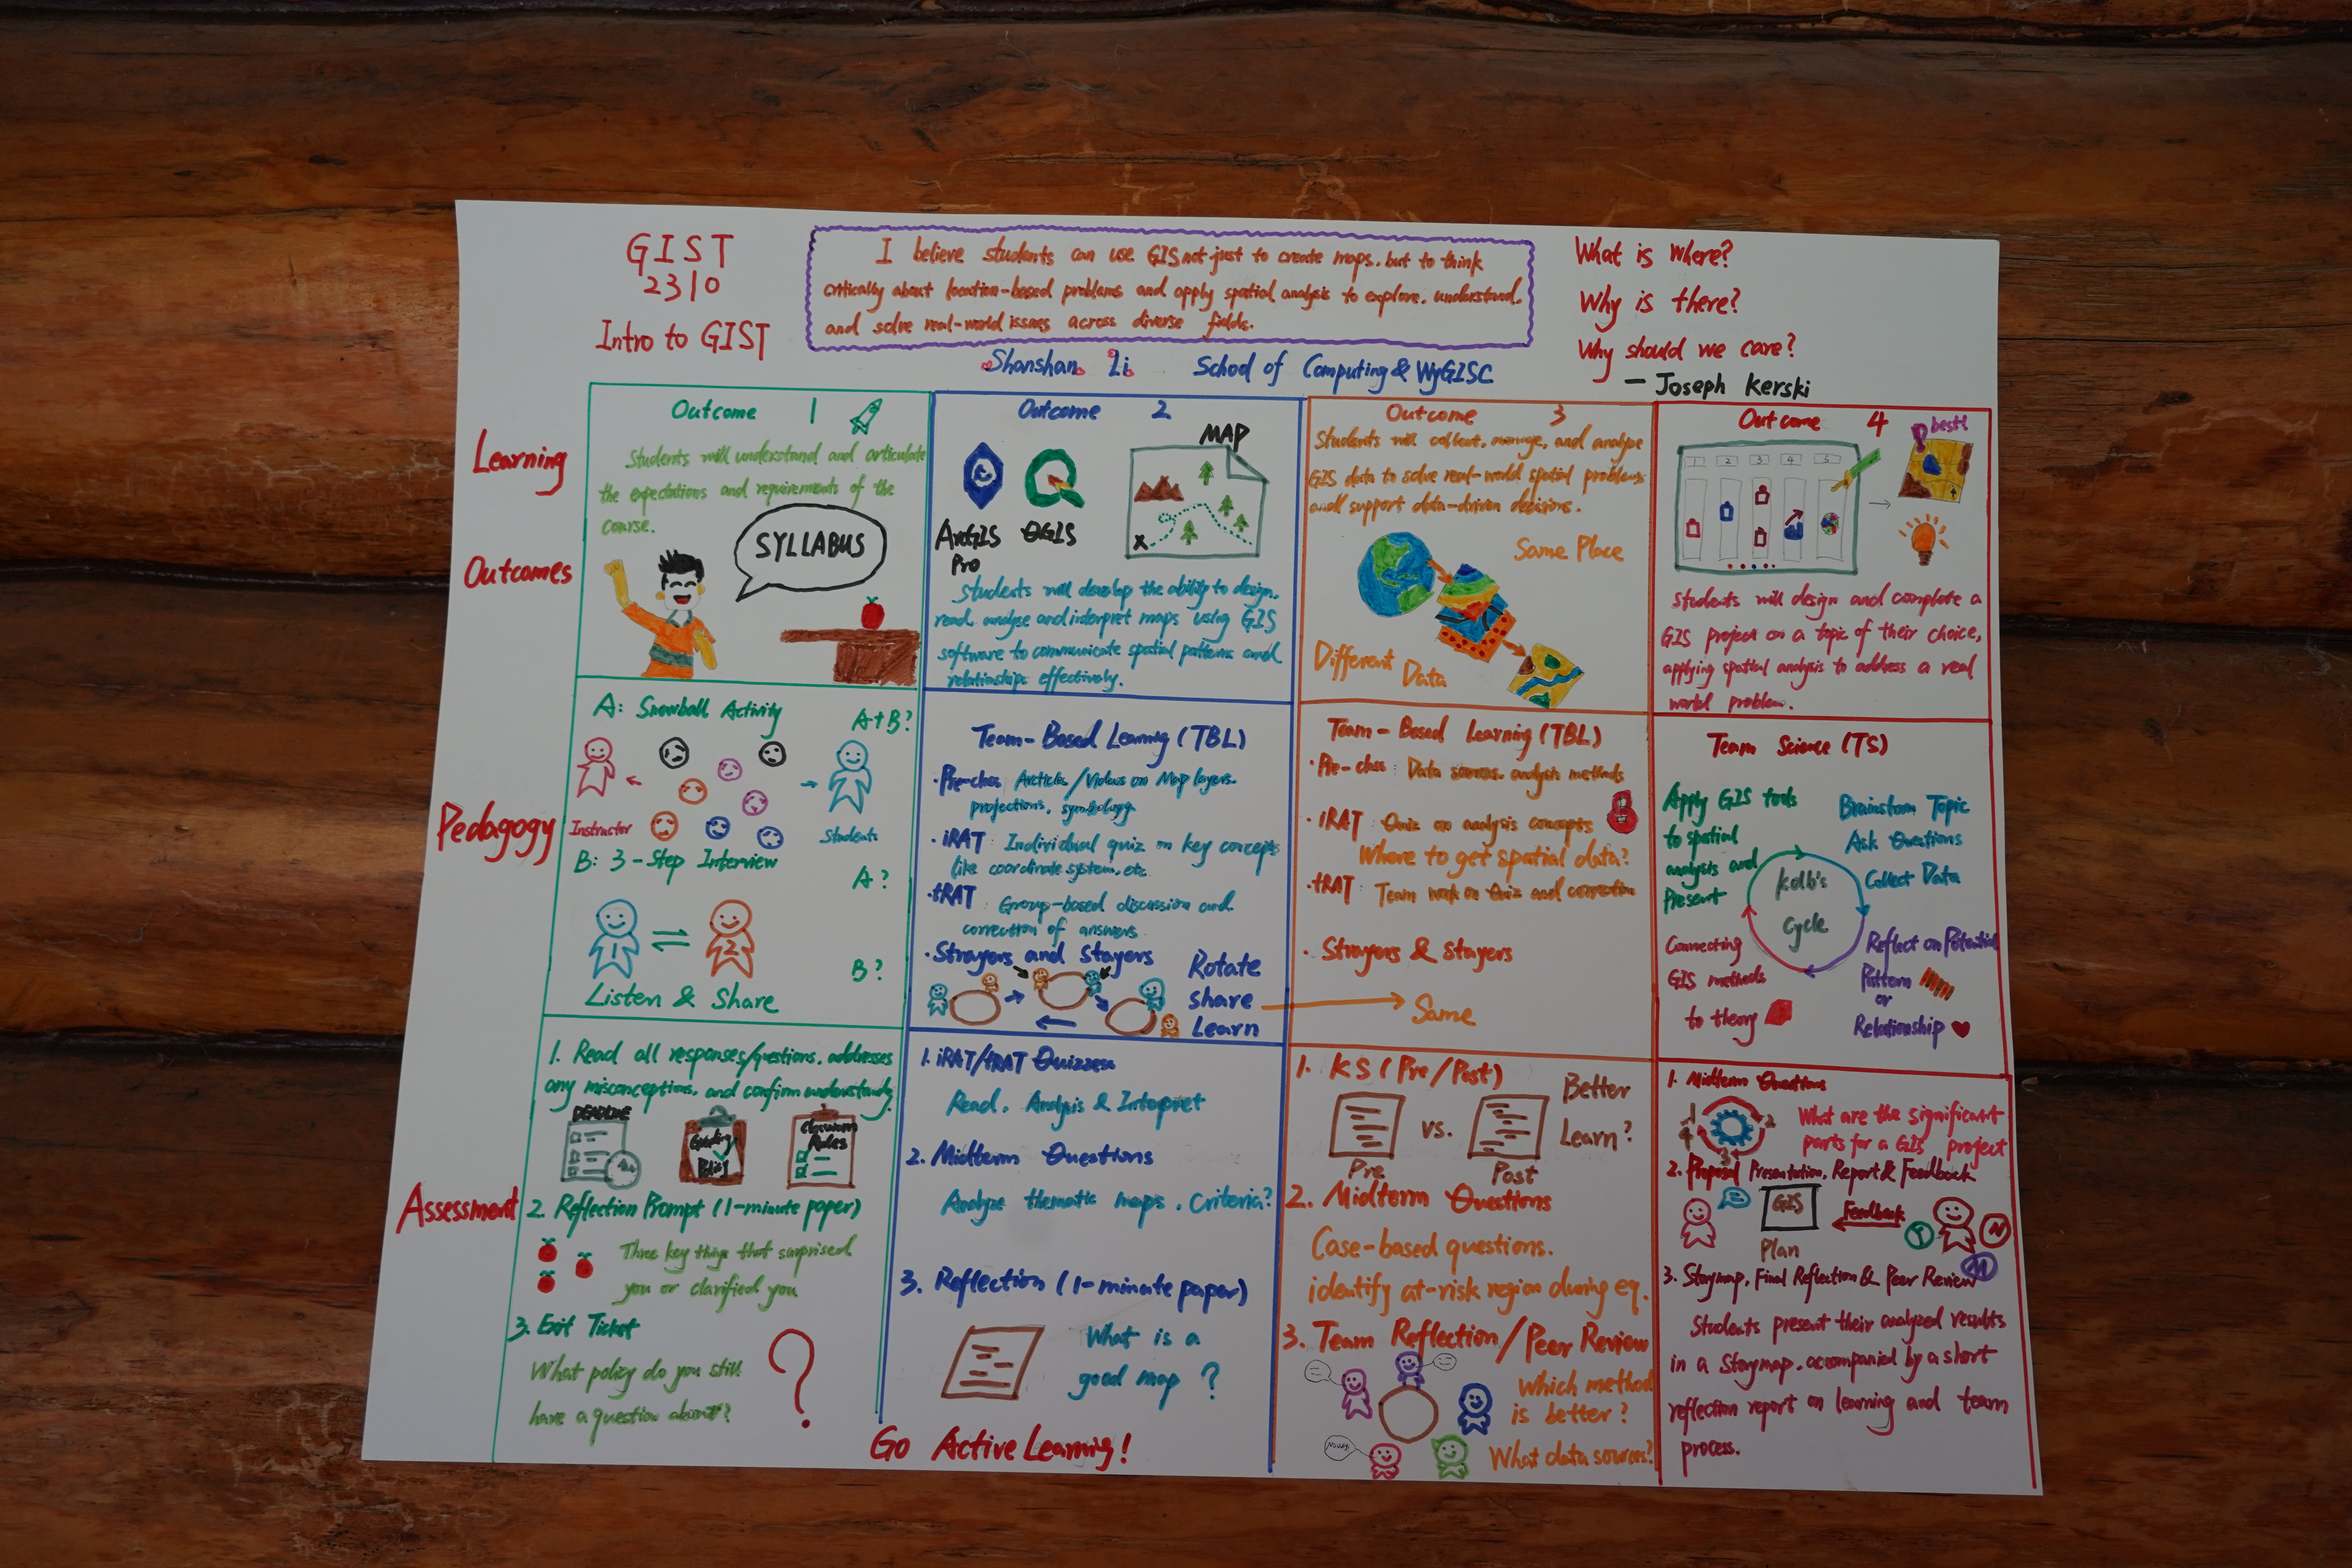 GIST
2310
Intro to GIST
I believe students can use GIS not just to create maps, but to think
critically about location-based problems and apply spatial analysis to explore, understand,
and solve real-world issues across diverse fields.
Shanshan Li School of Computing & WyGISC
What is where?
Why is there?
Why should we care?
— Joseph Kerski
Learning
Outcomes
Outcome 1
Students will understand and articulate
the expectations and requirements of the
course.
SYLLABUS
Outcome 2
ArcGIS
Pro
QGIS
MAP
X
Students will develop the ability to design,
read, analyse and interpret maps using GIS
software to communicate spatial patterns and
relationships effectively.
Outcome 3
Students will collect, manage, and analyze
GIS data to solve real-world spatial problems
and support data-driven decisions.
Same Place
Different Data
Outcome 4
1 2 3 4 5
best!
Students will design and complete a
GIS project on a topic of their choice,
applying spatial analysis to address a real
world problem.
Pedagogy
A: Snowball Activity
A+B?
Instructor
Students
B: 3-Step Interview
A?
1
2
B?
Listen & Share
Team-Based Learning (TBL)
· Pre-class Articles/Videos on Map layers.
projections, symbology
· iRAT: Individual quiz on key concepts
like coordinate system, etc
· tRAT: Group-based discussion and
correction of answers
· Strayers and Stayers
Rotate
share
Learn
Team-Based Learning (TBL)
· Pre-class: Data sources, analysis methods
· iRAT: Quiz on analysis concepts
Where to get spatial data?
· tRAT: Team work on Quiz and correction
· Strayers & Stayers
Same
Team Science (TS)
Apply GIS tools
to spatial
analysis and
Present
Brainstorm Topic
Ask Questions
Collect Data
Kolb's
Cycle
Reflect on Potential
Pattern
or
Relationship
Connecting
GIS methods
to theory
Assessment
1. Read all responses/questions, addresses
any misconceptions, and confirm understandy.
DEADLINE
Grading
Classroom
Rules
2. Reflection Prompt (1-minute paper)
Three key things that surprised
you or clarified you
3. Exit Ticket
What policy do you still
have a question about?
?
1. iRAT/tRAT Quizzes
Read, Analysis & Interpret
2. Midterm Questions
Analyze thematic maps, Criteria?
3. Reflection (1-minute paper)
What is a
good map?
1. KS (Pre/Post)
Pre
vs.
Post
Better
Learn?
2. Midterm Questions
Case-based questions.
identify at-risk region during eq.
3. Team Reflection/Peer Review
Which method
is better?
What data source?
1. Midterm Questions
1
2
3
4
What are the significant
parts for a GIS project
2. Proposal Presentation, Report & Feedback
GIS
Plan
Feedback
Y
N
M
3. Storymap, Final Reflection & Peer Review
Students present their analyzed results
in a Storymap, accompanied by a short
reflection report on learning and team
process.
Go Active Learning!